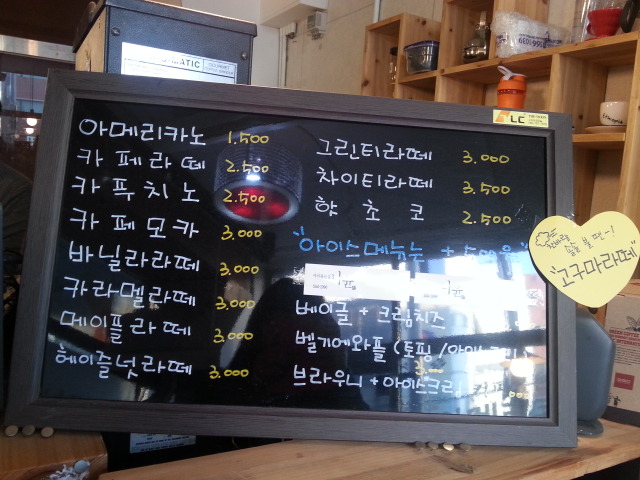 아메리카노 1.500
카페라떼 2.500
카푸치노 2.500
카페모카 3.000
바닐라라떼 3.000
카라멜라떼 3.000
메이플라떼 3.000
헤이즐넛라떼 3.000
그린티라떼 3.000
차이티라떼 3.500
핫초코 2.500
아이스메뉴는 + 500원
베이글 + 크림치즈
벨기에와플 (토핑/아이스크림)
3.000
브라우니 + 아이스크림
"고구마라떼"
LC